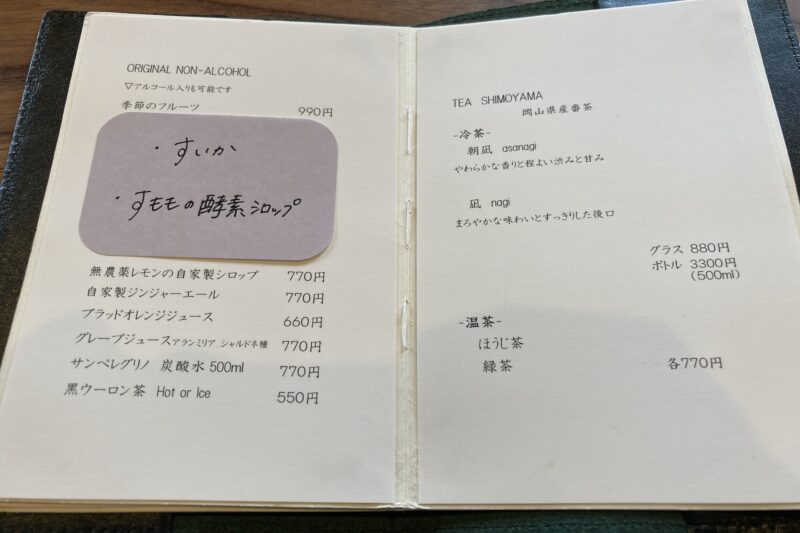 ORIGINAL NON-ALCOHOL
▽アルコール入りも可能です
季節のフルーツ 990円
・すいか
・すももの酵素シロップ
無農薬レモンの自家製シロップ 770円
自家製ジンジャーエール 770円
ブラッドオレンジジュース 660円
グレープジュースアランミリア、シャルドネ種 770円
サンペレグリノ 炭酸水 500ml 770円
黒ウーロン茶 Hot or Ice 550円
TEA SHIMOYAMA
岡山県産番茶
-冷茶-
朝凪 asanagi
やわらかな香りと程よい渋みと甘み
凪 nagi
まろやかな味わいとすっきりした後口
グラス 880円
ボトル 3300円
(500ml)
-温茶-
ほうじ茶
緑茶 各770円